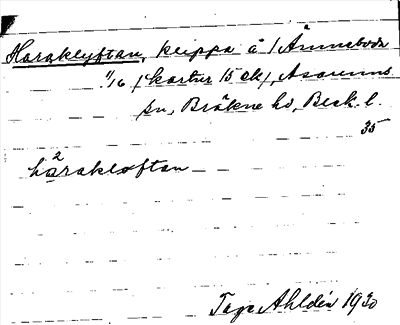 Haraklyftan, klippa å /Ämneboda
1/6 /kartbl 15 ek/, Asarums
sn, Bräkne hd, Blek. l.
35
2
håraklœftan
Tage Ahldén 1930